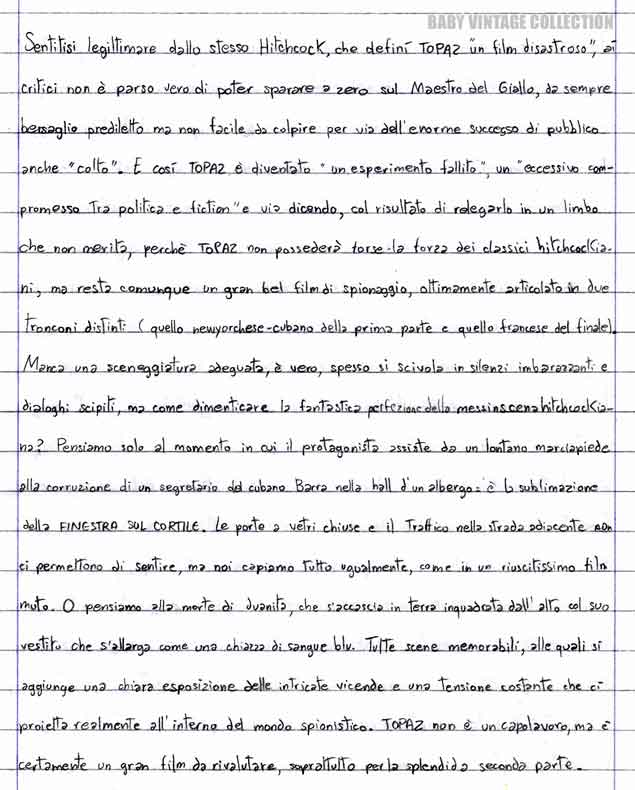 BABY VINTAGE COLLECTION
Sentitisi legittimare dallo stesso Hitchcock, che definì TOPAZ "un film disastroso", ai
critici non è parso vero di poter sparare a zero sul Maestro del Giallo, da sempre
bersaglio prediletto ma non facile da colpire per via dell'enorme successo di pubblico
anche "colto". E così TOPAZ è diventato "un esperimento fallito", un "eccessivo com-
promesso tra politica e fiction" e via dicendo, col risultato di relegarlo in un limbo
che non merita, perchè TOPAZ non possederà forse la forza dei classici hitchcockia-
ni, ma resta comunque un gran bel film di spionaggio, ottimamente articolato in due
tronconi distinti (quello newyorchese-cubano della prima parte e quello francese del finale).
Manca una sceneggiatura adeguata, è vero, spesso si scivola in silenzi imbarazzanti e
dialoghi scipiti, ma come dimenticare la fantastica perfezione della messinscena hitchcockia-
na? Pensiamo solo al momento in cui il protagonista assiste da un lontano marciapiede
alla corruzione di un segretario del cubano Barra nella hall d'un albergo: è la sublimazione
della FINESTRA SUL CORTILE. Le porte a vetri chiuse e il traffico nella strada adiacente non
ci permettono di sentire, ma noi capiamo tutto ugualmente, come in un riuscitissimo film
muto. O pensiamo alla morte di Juanita, che s'accascia in terra inquadrata dall'alto col suo
vestito che s'allarga come una chiazza di sangue blu. Tutte scene memorabili, alle quali si
aggiunge una chiara esposizione delle intricate vicende e una tensione costante che ci
proietta realmente all'interno del mondo spionistico. TOPAZ non è un capolavoro, ma è
certamente un gran film da rivalutare, soprattutto per la splendida seconda parte.